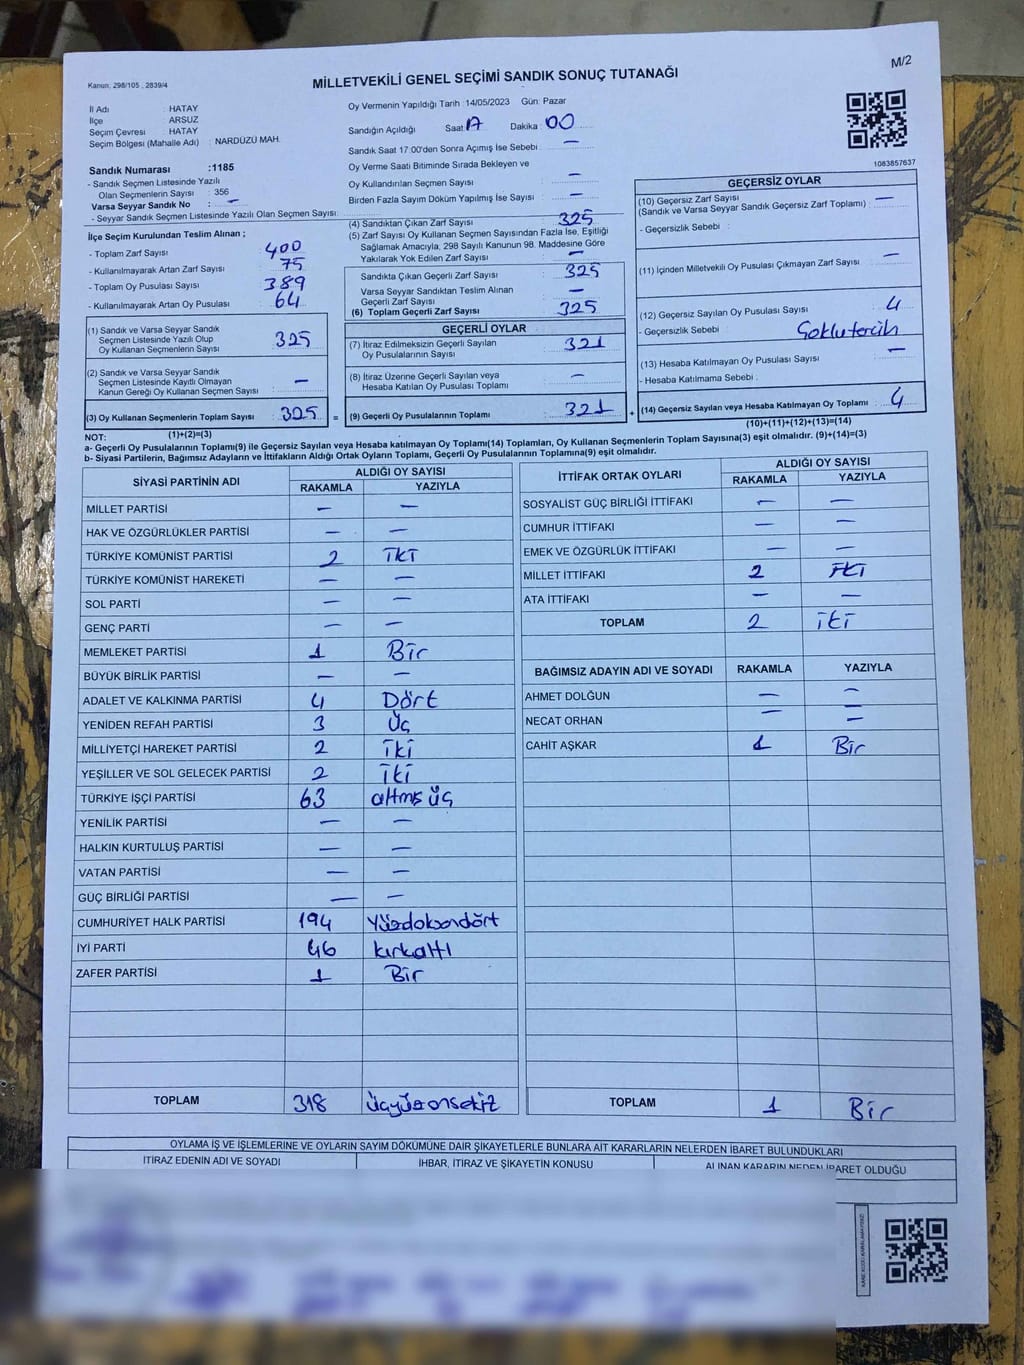 Kanun: 298/105 , 2839/4
MİLLETVEKİLİ GENEL SEÇİMİ SANDIK SONUÇ TUTANAĞI
M/2
İl Adı : HATAY
İlçe : ARSUZ
Seçim Çevresi : HATAY
Seçim Bölgesi (Mahalle Adı) : NARDÜZÜ MAH.
Oy Vermenin Yapıldığı Tarih :14/05/2023 Gün: Pazar
Sandığın Açıldığı Saat : 17 Dakika : 00
Sandık Saat 17:00'den Sonra Açımış İse Sebebi : —
Oy Verme Saati Bitiminde Sırada Bekleyen ve
Oy Kullandırılan Seçmen Sayısı : —
Birden Fazla Sayım Döküm Yapılmış İse Sayısı : —
1083857637
Sandık Numarası :1185
- Sandık Seçmen Listesinde Yazılı
Olan Seçmenlerin Sayısı : 356
Varsa Seyyar Sandık No : —
- Seyyar Sandık Seçmen Listesinde Yazılı Olan Seçmen Sayısı:
İlçe Seçim Kurulundan Teslim Alınan ;
- Toplam Zarf Sayısı : 400
- Kullanılmayarak Artan Zarf Sayısı : 75
- Toplam Oy Pusulası Sayısı : 389
- Kullanılmayarak Artan Oy Pusulası : 64
(1) Sandık ve Varsa Seyyar Sandık
Seçmen Listesinde Yazılı Olup
Oy Kullanan Seçmenlerin Sayısı : 325
(2) Sandık ve Varsa Seyyar Sandık
Seçmen Listesinde Kayıtlı Olmayan
Kanun Gereği Oy Kullanan Seçmen Sayısı : —
(3) Oy Kullanan Seçmenlerin Toplam Sayısı : 325 =
(1)+(2)=(3)
(4) Sandıktan Çıkan Zarf Sayısı : 325
(5) Zarf Sayısı Oy Kullanan Seçmen Sayısından Fazla İse, Eşitliği
Sağlamak Amacıyla, 298 Sayılı Kanunun 98. Maddesine Göre
Yakılarak Yok Edilen Zarf Sayısı : —
Sandıkta Çıkan Geçerli Zarf Sayısı : 325
Varsa Seyyar Sandıktan Teslim Alınan
Geçerli Zarf Sayısı : —
(6) Toplam Geçerli Zarf Sayısı : 325
GEÇERLİ OYLAR
(7) İtiraz Edilmeksizin Geçerli Sayılan
Oy Pusulalarının Sayısı : 321
(8) İtiraz Üzerine Geçerli Sayılan veya
Hesaba Katılan Oy Pusulası Toplamı : —
(9) Geçerli Oy Pusulalarının Toplamı : 321 +
GEÇERSİZ OYLAR
(10) Geçersiz Zarf Sayısı
(Sandık ve Varsa Seyyar Sandık Geçersiz Zarf Toplamı) : —
- Geçersizlik Sebebi :
(11) İçinden Milletvekili Oy Pusulası Çıkmayan Zarf Sayısı : —
(12) Geçersiz Sayılan Oy Pusulası Sayısı : 4
- Geçersizlik Sebebi : Çoklu tercih
(13) Hesaba Katılmayan Oy Pusulası Sayısı : —
- Hesaba Katılmama Sebebi :
(14) Geçersiz Sayılan veya Hesaba Katılmayan Oy Toplamı : 4
(10)+(11)+(12)+(13)=(14)
NOT:
a- Geçerli Oy Pusulalarının Toplamı(9) ile Geçersiz Sayılan veya Hesaba katılmayan Oy Toplamı(14) Toplamları, Oy Kullanan Seçmenlerin Toplam Sayısına(3) eşit olmalıdır. (9)+(14)=(3)
b- Siyasi Partilerin, Bağımsız Adayların ve İttifakların Aldığı Ortak Oyların Toplamı, Geçerli Oy Pusulalarının Toplamına(9) eşit olmalıdır.
SİYASİ PARTİNİN ADI ALDIĞI OY SAYISI
RAKAMLA YAZIYLA
MİLLET PARTİSİ — —
HAK VE ÖZGÜRLÜKLER PARTİSİ — —
TÜRKİYE KOMÜNİST PARTİSİ 2 İki
TÜRKİYE KOMÜNİST HAREKETİ — —
SOL PARTİ — —
GENÇ PARTİ — —
MEMLEKET PARTİSİ 1 Bir
BÜYÜK BİRLİK PARTİSİ — —
ADALET VE KALKINMA PARTİSİ 4 Dört
YENİDEN REFAH PARTİSİ 3 Üç
MİLLİYETÇİ HAREKET PARTİSİ 2 İki
YEŞİLLER VE SOL GELECEK PARTİSİ 2 İki
TÜRKİYE İŞÇİ PARTİSİ 63 altmış üç
YENİLİK PARTİSİ — —
HALKIN KURTULUŞ PARTİSİ — —
VATAN PARTİSİ — —
GÜÇ BİRLİĞİ PARTİSİ — —
CUMHURİYET HALK PARTİSİ 194 Yüzdoksandört
İYİ PARTİ 46 kırkaltı
ZAFER PARTİSİ 1 Bir
TOPLAM 318 Üçyüzonsekiz
İTTİFAK ORTAK OYLARI ALDIĞI OY SAYISI
RAKAMLA YAZIYLA
SOSYALİST GÜÇ BİRLİĞİ İTTİFAKI — —
CUMHUR İTTİFAKI — —
EMEK VE ÖZGÜRLÜK İTTİFAKI — —
MİLLET İTTİFAKI 2 İki
ATA İTTİFAKI — —
TOPLAM 2 İki
BAĞIMSIZ ADAYIN ADI VE SOYADI RAKAMLA YAZIYLA
AHMET DOLĞUN — —
NECAT ORHAN — —
CAHİT AŞKAR 1 Bir
TOPLAM 1 Bir
OYLAMA İŞ VE İŞLEMLERİNE VE OYLARIN SAYIM DÖKÜMÜNE DAİR ŞİKAYETLERLE BUNLARA AİT KARARLARIN NELERDEN İBARET BULUNDUKLARI
İTİRAZ EDENİN ADI VE SOYADI İHBAR, İTİRAZ VE ŞİKAYETİN KONUSU ALINAN KARARIN NEDEN İBARET OLDUĞU